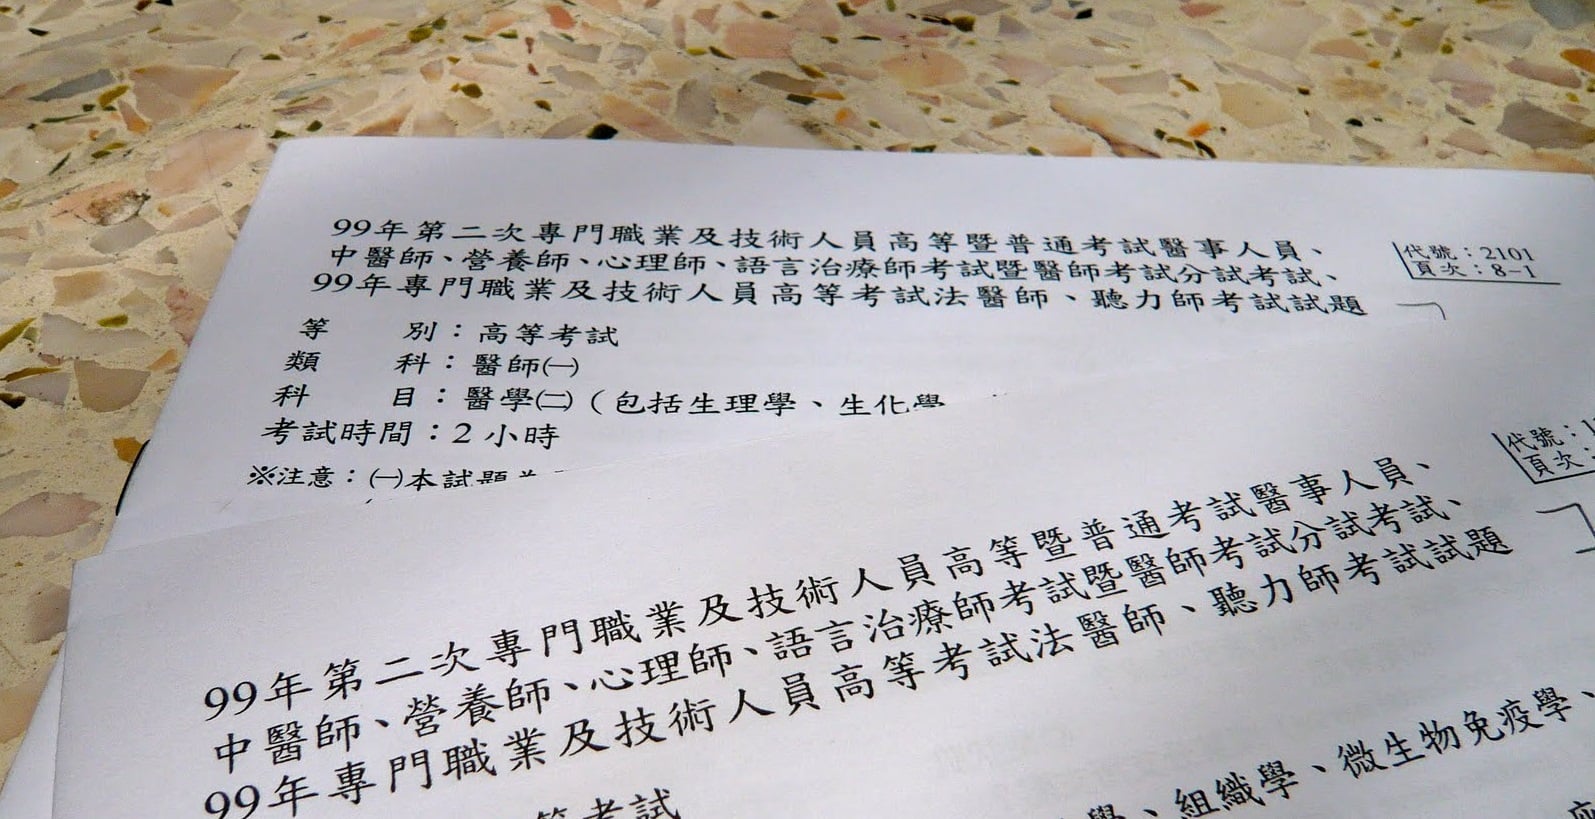 99年第二次專門職業及技術人員高等暨普通考試醫事人員、
中醫師、營養師、心理師、語言治療師考試暨醫師考試分試考試、
99年專門職業及技術人員高等考試法醫師、聽力師考試試題
代號：2101
頁次：8-1
等別：高等考試
類科：醫師㈠
科目：醫學㈡（包括生理學、生化學
考試時間：2小時
※注意：㈠本試題
99年第二次專門職業及技術人員高等暨普通考試醫事人員、
中醫師、營養師、心理師、語言治療師考試暨醫師考試分試考試、
99年專門職業及技術人員高等考試法醫師、聽力師考試試題
代號：1
頁次：
等考試
學、組織學、微生物免疫學、